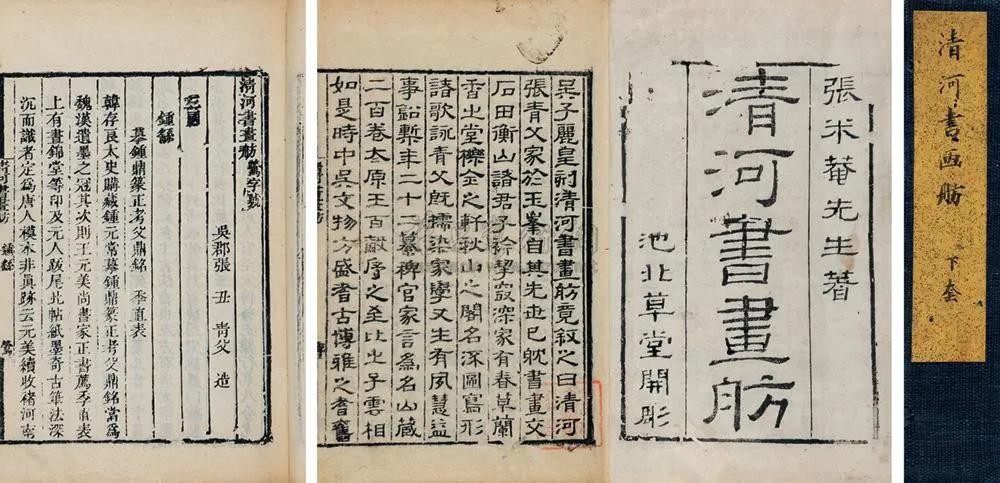 清河書画舫 下套
張米菴先生著
清河書畫舫
池北草堂開彫
吳子麗皇刻清河書畫舫竟敘之曰清河
張青父家於玉峯自其先世已躭書畫交
石田衡山諸君子衿契寂深家有春草蘭
香之堂櫟金之軒秋山之閣名流圖寫形
諸歌詠青父既擩染家學又生有夙慧益
事鉛槧年二十二纂稗官家言為名山藏
二百卷太原王百穀序之至比之子雲相
如是時中吳文物方盛耆古博雅之耆舊
清河書畫舫 鶯字號
吳郡張 丑 青父 造
三國
鍾繇
摹鍾鼎篆正考父鼎銘 季直表
韓存良太史購藏鍾元常摹鍾鼎篆正考父鼎銘當為
魏漢遺墨之冠其次則王元美尚書家正書薦季直表
上有書錦堂等印及元人跋尾北帖紙墨奇古筆法深
沉而識者定為唐人模本非眞跡云元美續收褚河南